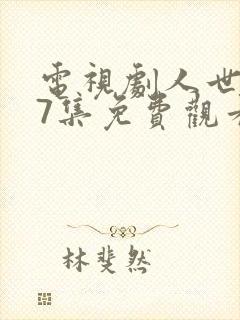 電視劇人世
7集免費觀看
林斐然